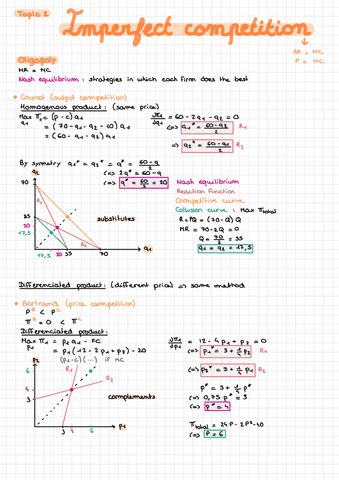 Topic 2
Imperfect competition
AR = MC
P = MC
Oligopoly
MR = MC
Nash equilibrium : strategies in which each firm does the best
Cournot (output competition)
Homogenous product : (same price)
Max π₁ = (p - c) q₁
q₁
= (70 - q₁ - q₂ - 10) q₁
= (60 - q₁ - q₂) q₁
∂π₁/∂q₁ = 60 - 2q₁ - q₂ = 0
(=) q₁* = (60 - q₂)/2 R₁
=> q₂* = (60 - q₁)/2 R₂
By symmetry q₁* = q₂* = q* = (60 - q)/2
(=) 2q* = 60 - q
(=) q* = 60/3 = 20
q₂
70
35
20
17,5
R₁
R₂
substitutes
17,5
20
35
70
q₁
Nash equilibrium
Reaction function
Competitive curve
Collusion curve : Max π total
R = PQ = (70 - Q) Q
MR = 70 - 2Q = 0
Q = 70/2 = 35
q₁ = q₂ = 17,5
Differenciated product : (different price) => same method
Bertrand (price competition)
Pᴮ < Pᶜ
πᴮ = 0 < πᶜ
Differenciated product :
Max π₁ = p₁ q₁ - FC
p₁
= p₁ (12 - 2p₁ + p₂) - 20
(p₁ - c) (...) if MC
∂π₁/∂p₁ = 12 - 4p₁ + p₂ = 0
(=) p₁* = 3 + ¼ p₂ R₁
(=) p₂* = 3 + ¼ p₁ R₂
p* = 3 + ¼ p*
(=) 0,75 p* = 3
(=) p* = 4
π total = 24P - 2P² - 40
(=) P = 6
p₂
6
4
3
R₁
R₂
complements
3
4
6
p₁